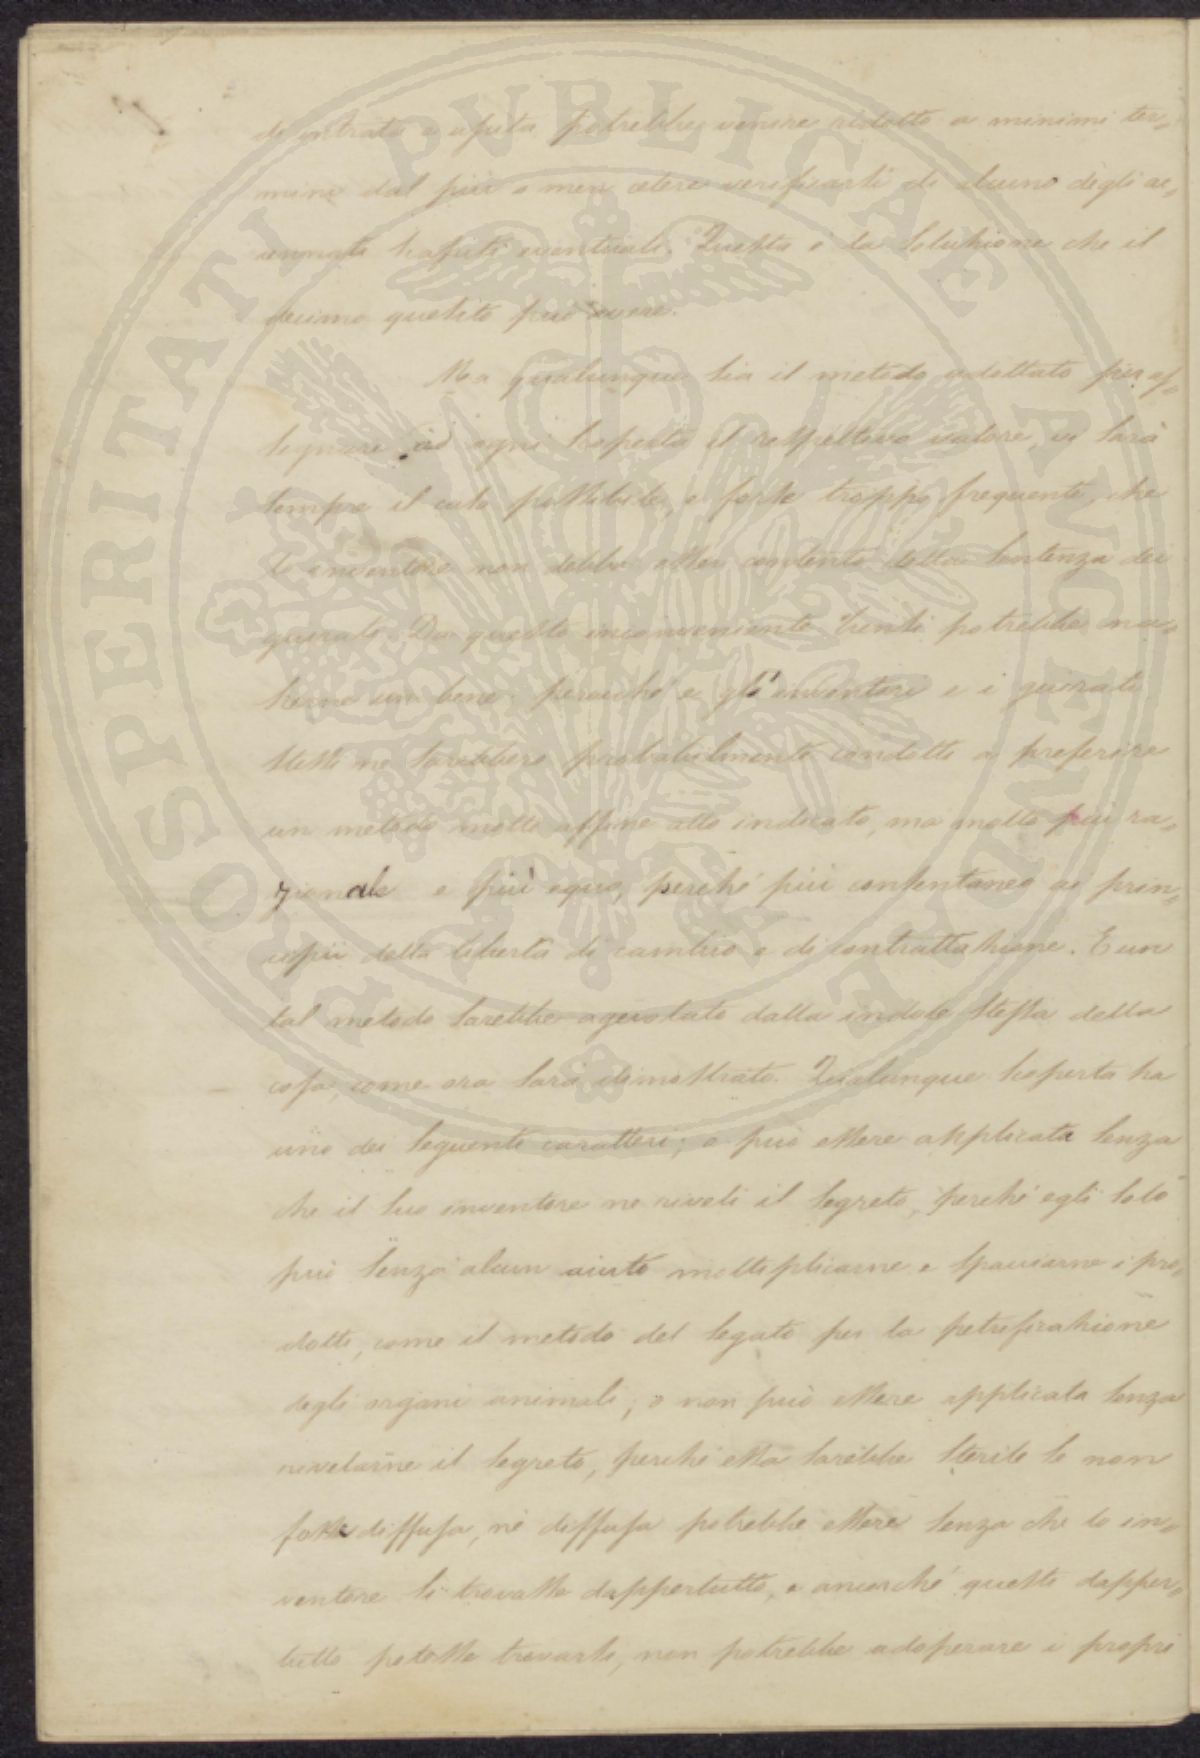 di entrata e uscita potrebbe venire ridotto a minimi ter=
mini dal più o men celere verificarsi di alcuno degli ac=
cennati eventuali. Questa è la soluzione che il
decimo quesito può avere.
Ma qualunque sia il metodo adottato per as=
segnare ad ogni scoperta il rispettivo valore, vi sarà
sempre il caso possibile, e forse troppo frequente, che
lo inventore non debba esser contento della sentenza dei
giurati. Da questo inconveniente potrebbe na=
scerne un bene: perocché e gl'inventori e i giurati
stessi ne sarebbero probabilmente condotti a preferire
un metodo molto affine allo indicato, ma molto più ra=
zionale e più equo, perché più consentaneo ai prin=
cipii della libertà di cambio e di contrattazione. E un
tal metodo sarebbe agevolato dalla indole stessa della
cosa, come ora sarà dimostrato. Qualunque scoperta ha
uno dei seguenti caratteri; o può essere applicata senza
che il suo inventore ne riveli il segreto, perché egli solo
può senza alcun aiuto moltiplicarne e spacciarne i pro=
dotti, come il metodo del Segato per la petrificazione
degli organi animali; o non può essere applicata senza
rivelarne il segreto, perché essa sarebbe sterile se non
fosse diffusa, né diffusa potrebbe essere senza che lo in=
ventore si trovasse dappertutto, e ancorché questi dapper=
tutto potesse trovarsi, non potrebbe adoperare i propri
PROSPERITATI PVBLICAE AVGENDAE